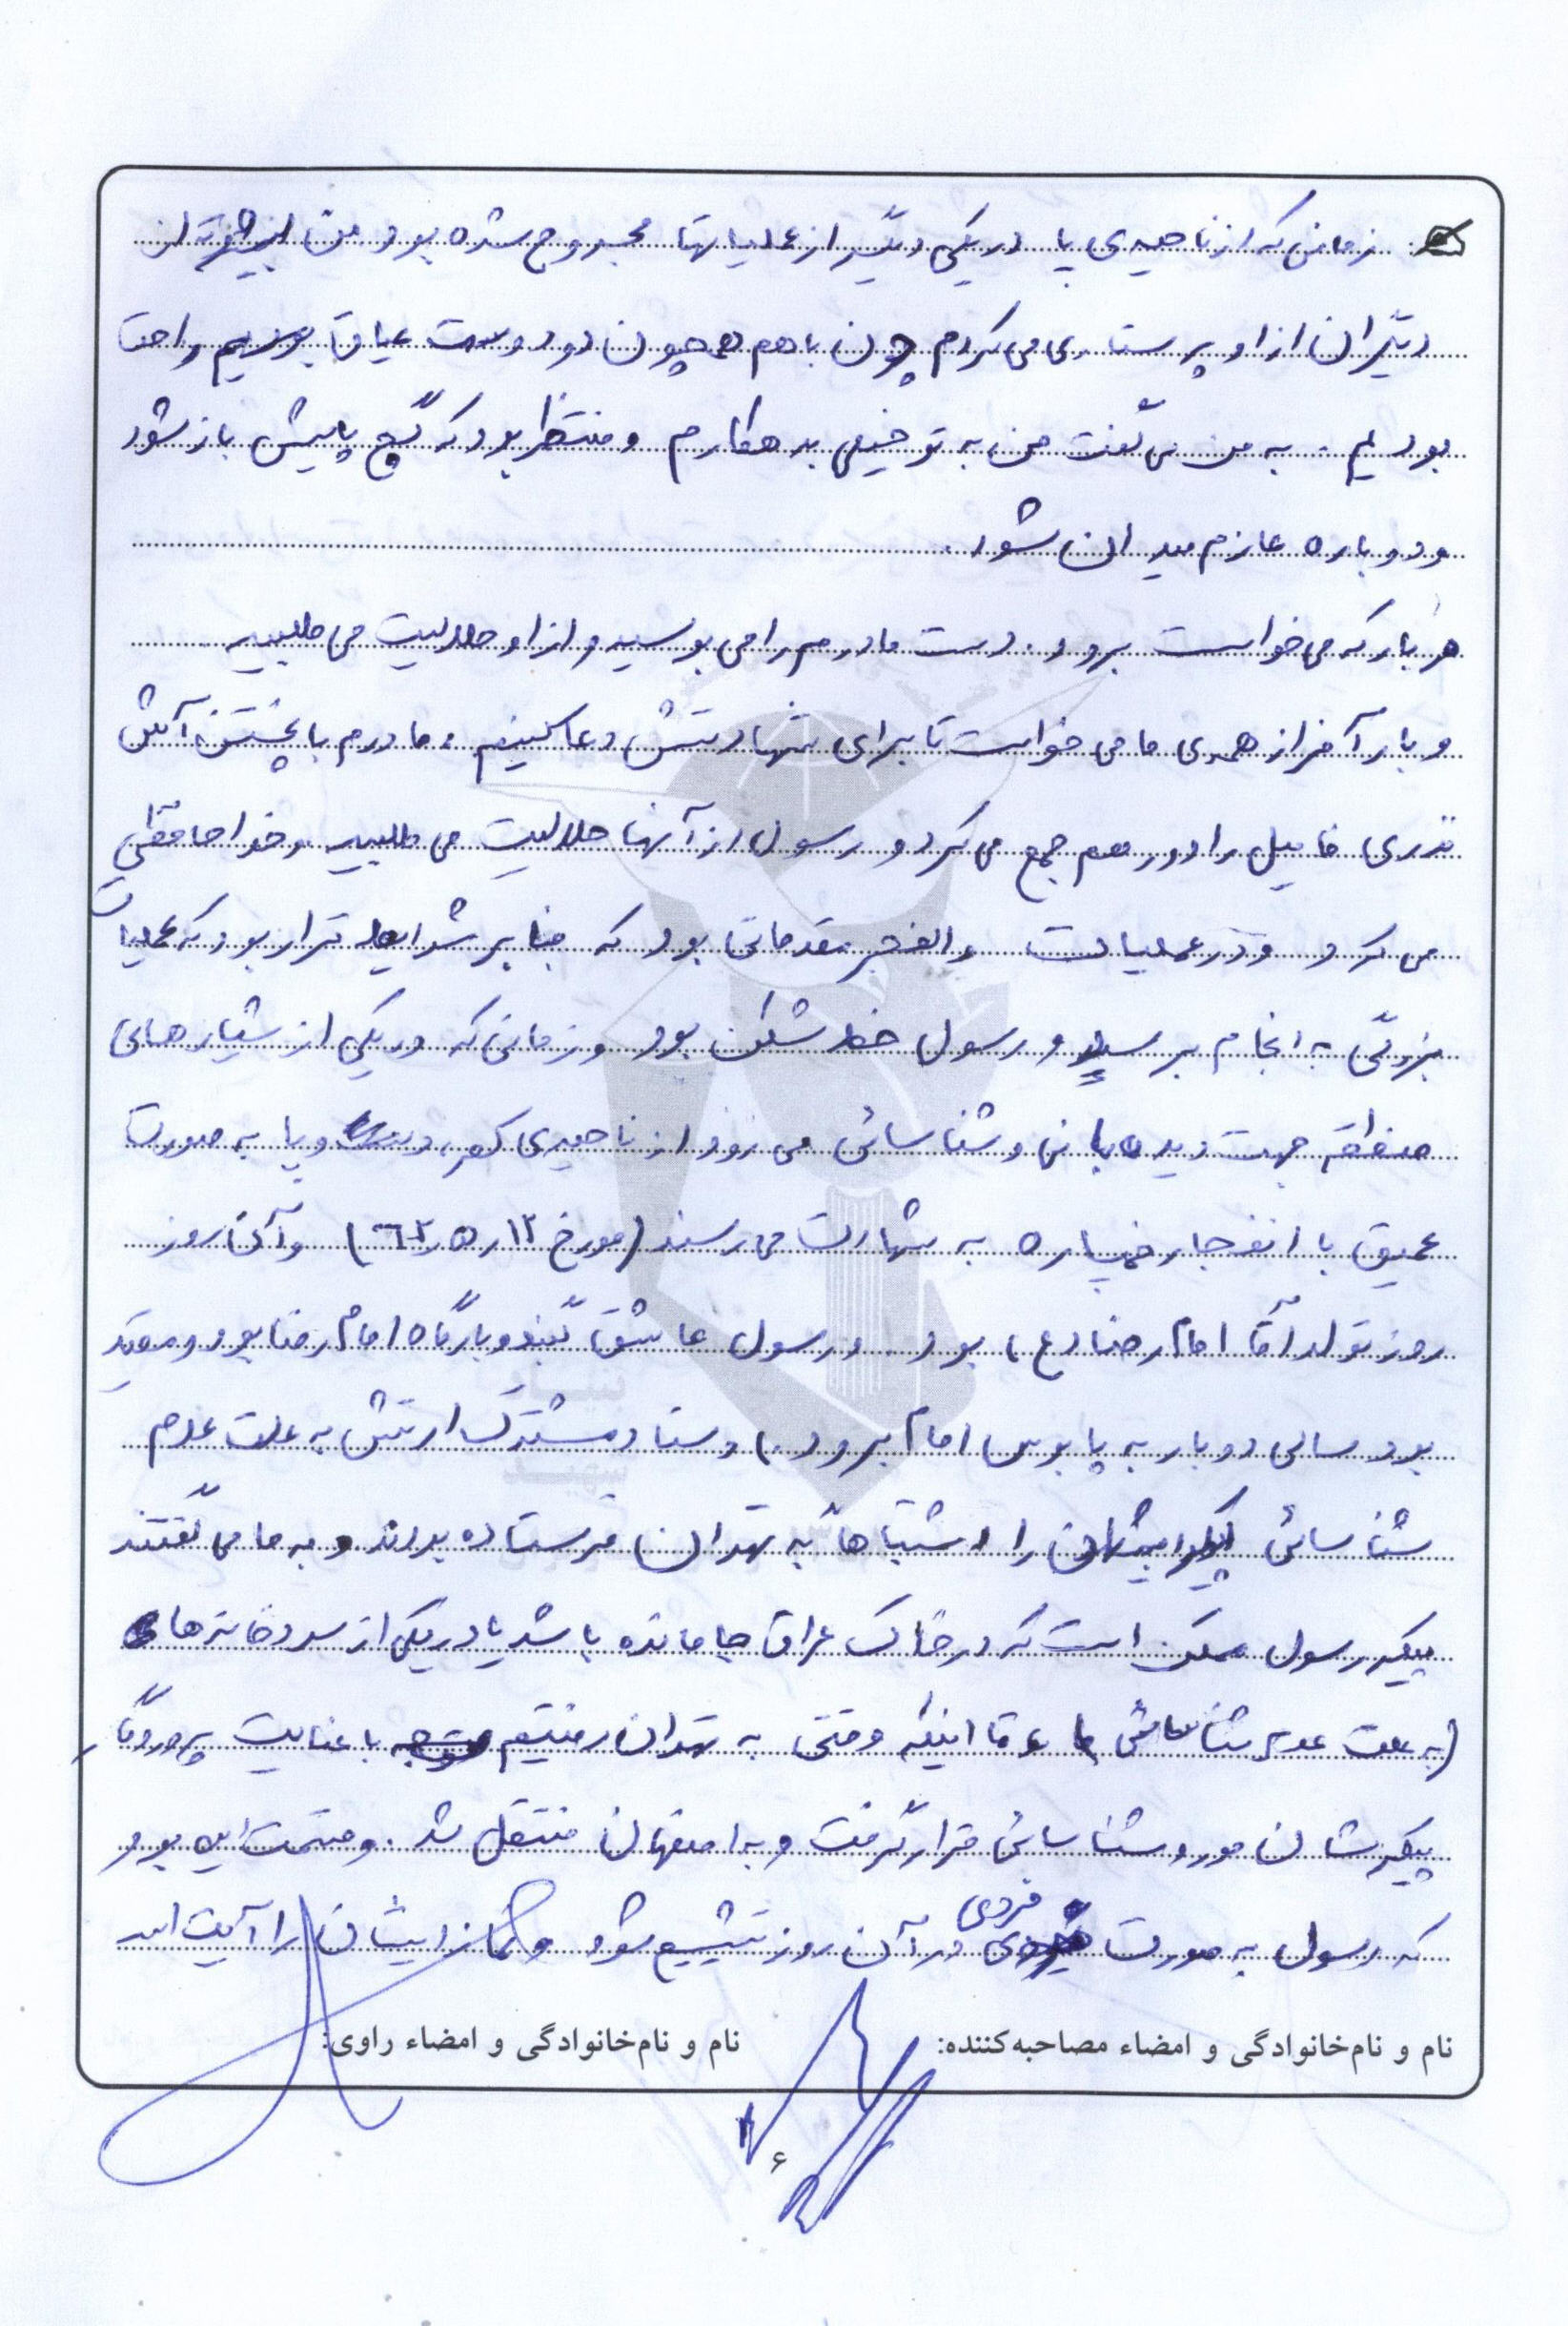 زمانی که از ناحیه‌ی پا در یکی دیگر از عملیاتها مجروح شده بود من بیشتر از
دیگران از او پرستاری می کردم چون با هم همچون دو دوست عیاق بودیم و راحت
بودیم . به من می گفت من به تو خیلی بدهکارم و منتظر بود که گچ پایش باز شود
و دوباره عازم میدان شود .
هر بار که می خواست برود . دست مادرم را می بوسید و از او حلالیت می طلبید
و بار آخر از همه ی ما می خواست تا برای شهادتش دعا کنیم ، مادرم با پختن آش
نذری فامیل را دور هم جمع می کرد و رسول از آنها حلالیت می طلبید و خداحافظی
می کرد و در عملیات والفجر مقدماتی بود که بنا بر شرایط قرار بود که عملیات
بزرگی به انجام برسد و رسول خط شکن بود و زمانی که در یکی از شیارهای
منطقه جهت دیده بانی و شناسائی می رود از ناحیه ی کمر ، دست و پا به صورت
عمیق با انفجار خمپاره به شهادت می رسند (مورخ ۱۳ ر ۵ ر ۶۲) و آن روز
روز تولد آقا امام رضا (ع) بود . و رسول عاشق گنبد و بارگاه امام رضا بود و مقید
بود سالی دو بار به پابوس امام برود .) و ستاد مشترک ارتش به علت عدم
شناسائی پیکر ایشان را اشتباهاً به تهران فرستاده بودند و به ما می گفتند
پیکر رسول ممکن است که در خاک عراق جا مانده باشد یا در یکی از سردخانه های
(به علت عدم شناسائی) تا اینکه وقتی به تهران رفتیم با عنایت پروردگار
پیکرشان مورد شناسائی قرار گرفت و به اصفهان منتقل شد . و قسمت این بود
که رسول به صورت فردی در آن روز تشییع شود و نماز ایشان را آیت الله
نام و نام‌خانوادگی و امضاء مصاحبه‌کننده: نام و نام‌خانوادگی و امضاء راوی:
۶